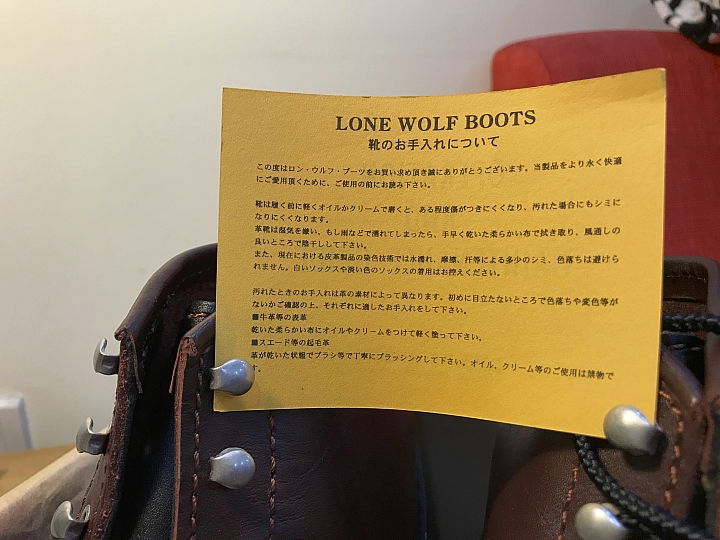 LONE WOLF BOOTS
靴のお手入れについて
この度はロン・ウルフ・ブーツをお買い求め頂き誠にありがとうございます。当製品をより永く快適
にご愛用頂くために、ご使用の前にお読み下さい。
靴は履く前に軽くオイルかクリームで磨くと、ある程度傷がつきにくくなり、汚れた場合にもシミに
なりにくくなります。
革靴は湿気を嫌い、もし雨などで濡れてしまったら、手早く乾いた柔らかい布で拭き取り、風通しの
良いところで陰干しして下さい。
また、現在における皮革製品の染色技術では水濡れ、摩擦、汗等による多少のシミ、色落ちは避けら
れません。白いソックスや淡い色のソックスの着用はお控えください。
汚れたときのお手入れは革の素材によって異なります。初めに目立たないところで色落ちや変色等が
ないかご確認の上、それぞれに適したお手入れをして下さい。
■牛革等の表革
乾いた柔らかい布にオイルやクリームをつけて軽く塗って下さい。
■スエード等の起毛革
革が乾いた状態でブラシ等で丁寧にブラッシングして下さい。オイル、クリーム等のご使用は禁物で
す。